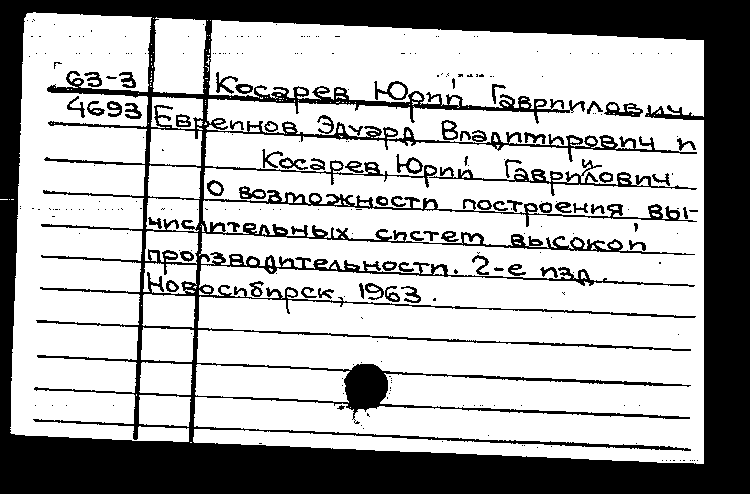 63-3 Косарев, Юрий Гаврилович.
4693 Евреинов, Эдуард Владимирович и
Косарев, Юрий Гаврилович.
О возможности построения вы-
числительных систем высокой
производительности. 2-е изд.
Новосибирск, 1963.